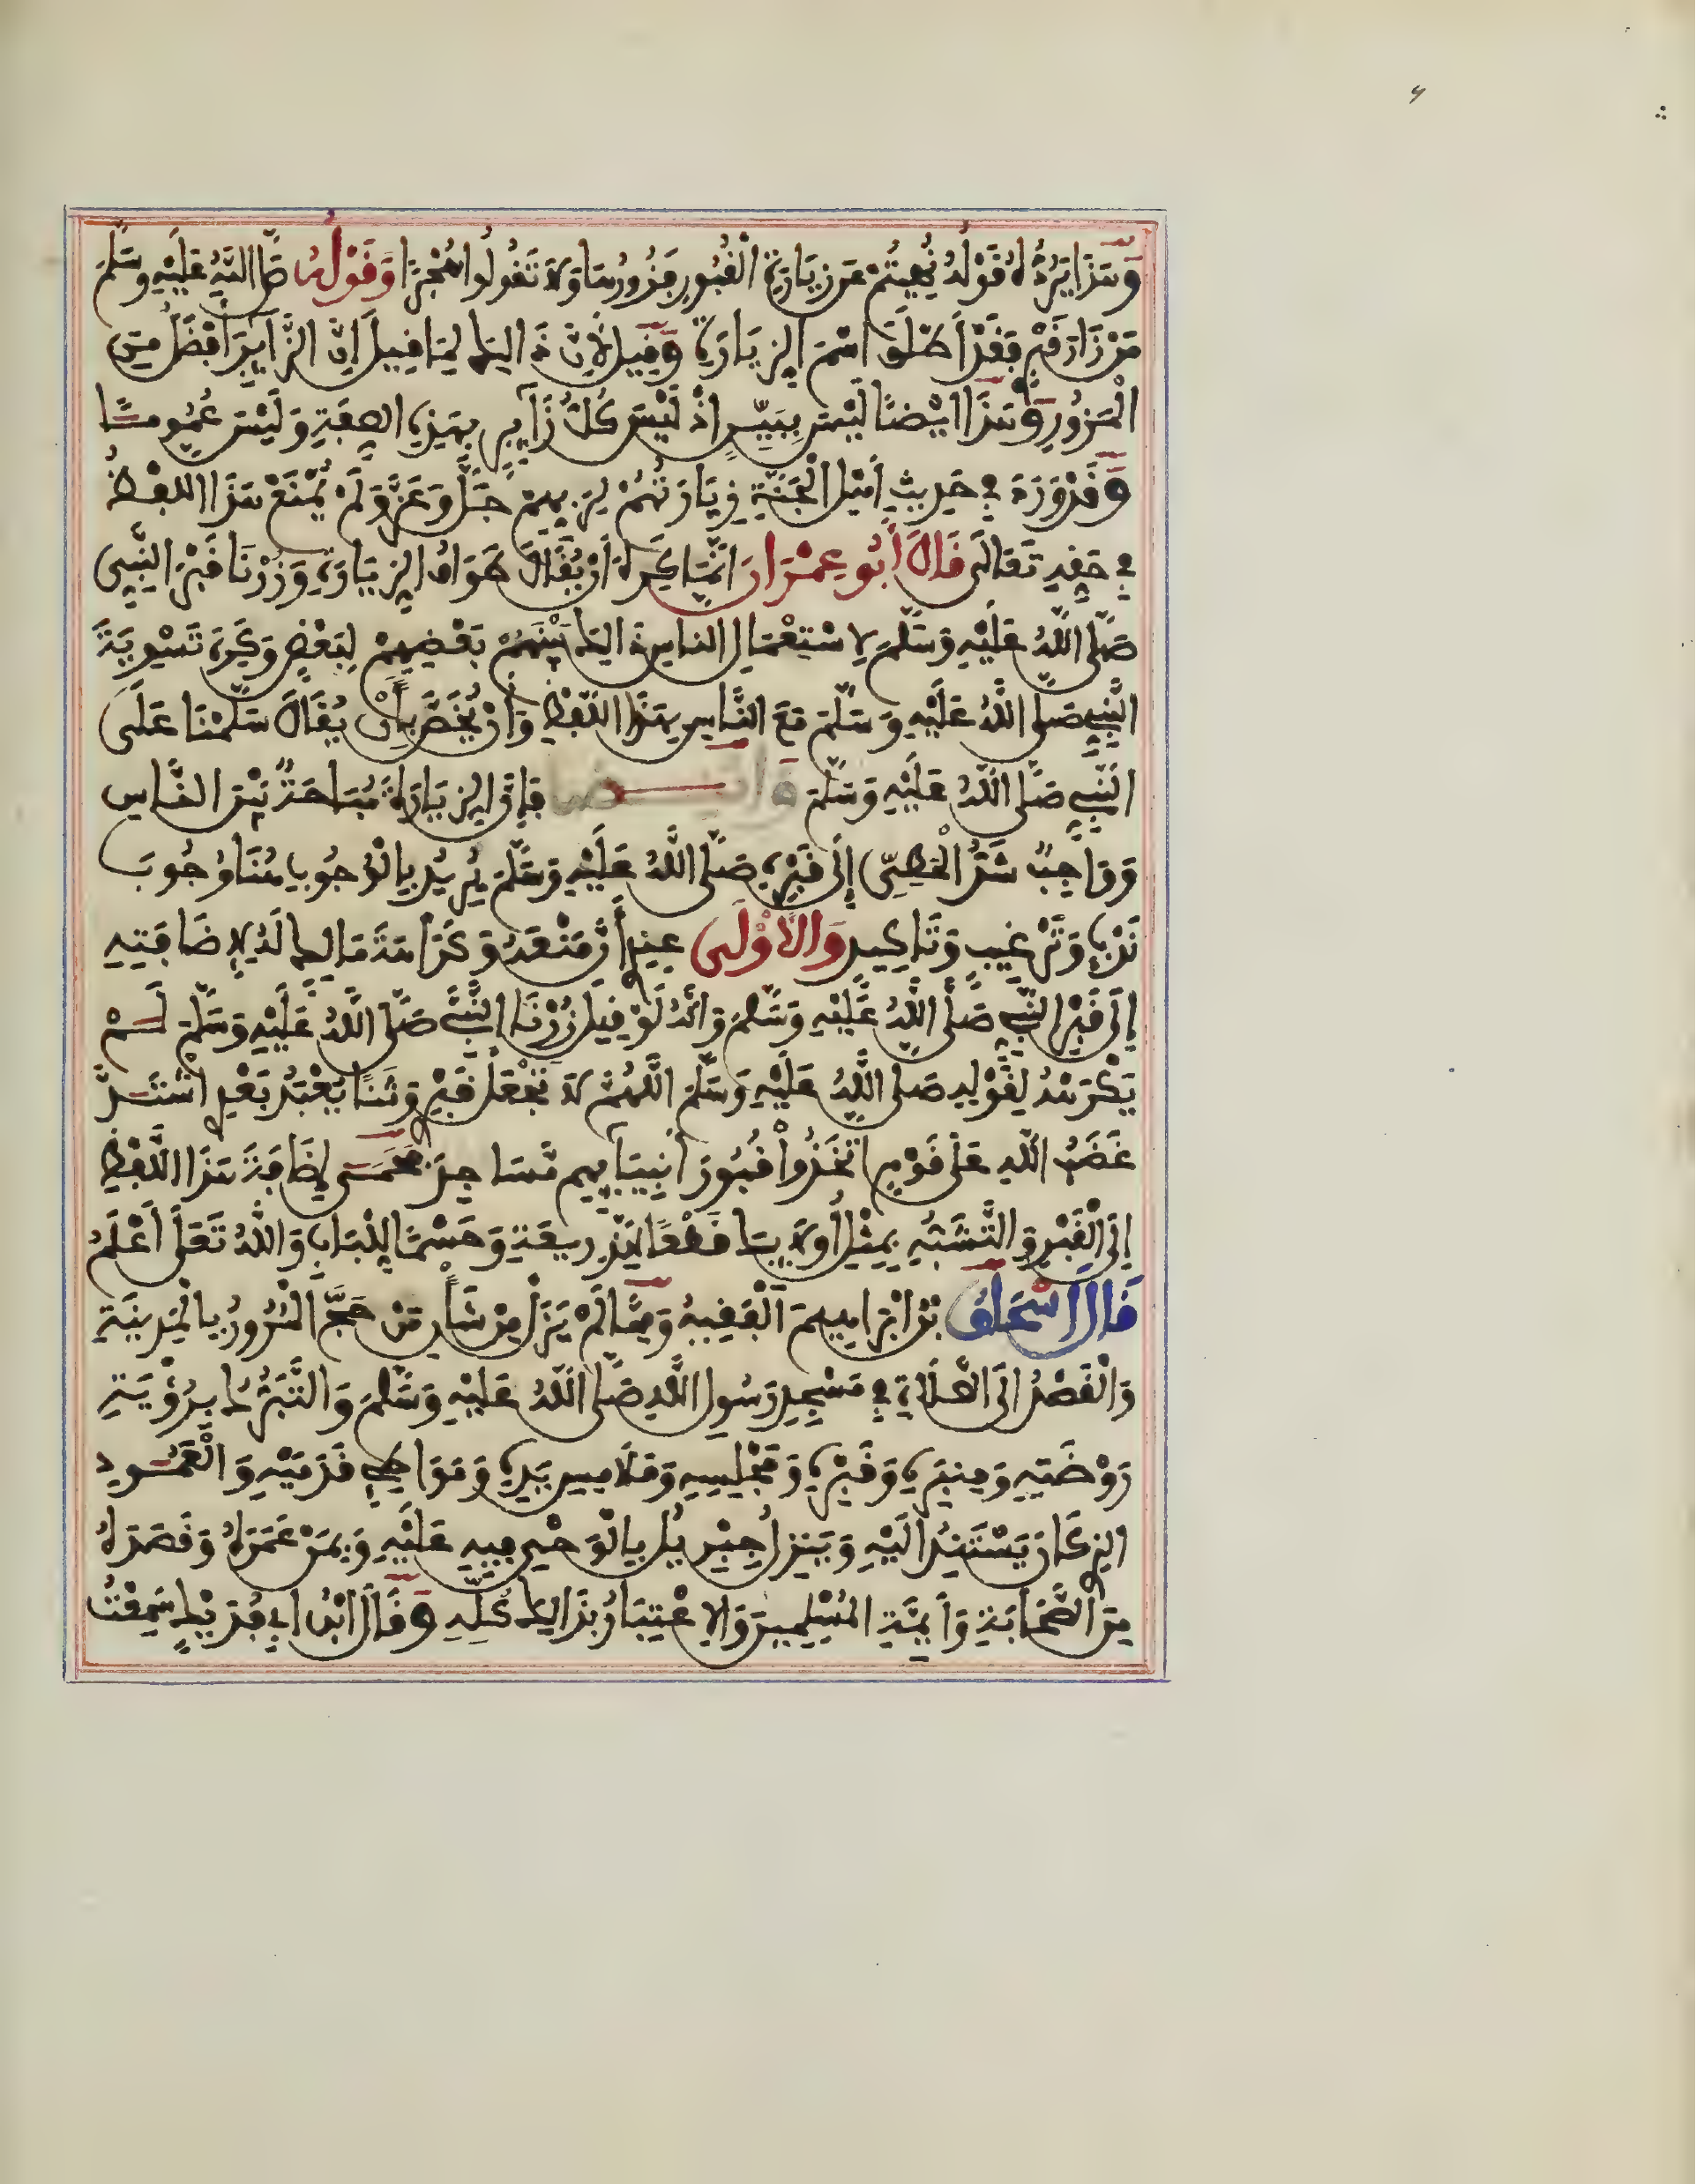 وَهَذَا يَرُدُّهُ قَوْلُهُ نُهِيتُمْ عَن زِيَارَةِ الْقُبُورِ فَزُورُوهَا وَلَا تَقُولُوا هُجْرًا وَقَوْلُهُ صَلَّى اللَّهُ عَلَيْهِ وَسَلَّمَ
مَنْ زَارَ قَبْرِي فَقَدْ أَطْلَقَ اسْمَ الزِيَارَةِ وَقِيلَ لِأَنَّ ذَالِكَ لِمَا قِيلَ إِنَّ الزَّايِرَ أَفْضَلُ مِنَ
الْمَزُورِ وَهَذَا ايْضًا لَيْسَ بِبَيِّنٍ اذْ لَيْسَ كُلُّ زَايِرٍ بِهَذِهِ الصِفَةِ وَلَيْسَ عُمُومًا
وَقَدْ وَرَدَ فِي حَدِيثِ أَهْلِ الْجَنَّةِ زِيَارَتُهُمْ لِرَبِّهِمْ جَلَّ وَعَزَّ وَلَمْ يُمْنَعْ هَذَا اللفْظُ
فِي حَقِهِ تَعَالَى قَالَ أَبُو عِمْرَانَ انَّمَا كُرِهَ أَنْ يُقَالَ طَوَافُ الزِيَارَةِ وَزُرْنَا قَبْرَ النَّبِيِّ
صَلَّى اللَّهُ عَلَيْهِ وَسَلَّمَ لِاسْتِعْمَالِ الناسِ ذَالِكَ بَيْنَهُمْ بَعْضِهِمْ لِبَعْضٍ وَكَرِهَ تَسْوِيَةَ
النَّبِيِّ صَلى اللَّهُ عَلَيْهِ وَسَلَّمَ مَعَ النَّاسِ بِهَذَا اللَّفْظِ وَأَنْ يُخَصَّ بِأَنْ يُقَالَ سَلَّمْنَا عَلَى
النَّبِيِّ صَلَّى اللَّهُ عَلَيْهِ وَسَلَّمَ وَايْضا فَإِنَّ الزِيَارَةَ مُبَاحَةٌ بَيْنَ النَّاسِ
وَوَاجِبٌ شَدُّ الْمَطِيِّ إِلَى قَبْرِهِ صَلَّى اللَّهُ عَلَيْهِ وَسَلَّمَ يُرِيدُ بِالْوُجُوبِ هُنَا وُجُوبَ
نَدْبٍ وَتَرْغِيبٍ وَتَاكِيدٍ وَالأَوْلَى عِنْدِي أَنَّ مَنْعَهُ وَكَرَاهَةَ مَالِكٍ لَهُ لِإِضَافَتِهِ
إِلَى قَبْرِ النَّبِيِّ صَلَّى اللَّهُ عَلَيْهِ وَسَلَّمَ وَأَنَّهُ لَوْ قِيلَ زُرْنَا النَّبِيَّ صَلَّى اللَّهُ عَلَيْهِ وَسَلَّمَ لَمْ
يَكْرَهْهُ لِقَوْلِهِ صَلى اللَّهُ عَلَيْهِ وَسَلَّمَ اللَّهُمَّ لَا تَجْعَلْ قَبْرِي وَثَنًا يُعْبَدُ بَعْدِي اشْتَدَّ
غَضَبُ اللَّهِ عَلَى قَوْمٍ اتَّخَذُوا قُبُورَ أَنْبِيَايِهِم مَسَاجِدَ فَحَمَى إِضَافَةَ هَذَا اللَّفْظِ
إِلَى الْقَبْرِ وَالتَّشَبُّهِ بِفِعْلِ أُولَايِكَ قَطْعًا لِلذَّرِيعَةِ وَحَسْمًا لِلْبَابِ وَاللَّهُ تَعَلَى أَعْلَمُ
قَالَ اسْحَاقُ بْنُ ابْرَاهِيمَ الْفَقِيهُ وَمِمَّا لَمْ يَزَلْ مِنْ شَأْنِ مَنْ حَجَّ الْمُرُورُ بِالْمَدِينَةِ
وَالْقَصْدُ الَى الصَّلَاةِ فِي مَسْجِدِ رَسُولِ اللَّهِ صَلَّى اللَّهُ عَلَيْهِ وَسَلَّمَ وَالتَّبَرُّكُ بِرُؤْيَةِ
رَوْضَتِهِ وَمِنْبَرِهِ وَقَبْرِهِ وَمَجْلِسِهِ وَمَلَامِسِ يَدِهِ وَمَوَاطِئِ قَدَمَيْهِ وَالْعَمُودِ
الذِي كَانَ يَسْتَنِدُ الَيْهِ وَيَنْزِلُ جِبْرِيلُ بِالْوَحْيِ فِيهِ عَلَيْهِ وَبِمَنْ عَمَرَهُ وَقَصَدَهُ
مِنَ الصَّحَابَةِ وَأَيِمَّةِ الْمُسْلِمِينَ وَالاِعْتِبَارُ بِذَالِكَ كُلِّهِ وَقَالَ ابْنُ ابِي فُدَيْكٍ سَمِعْتُ